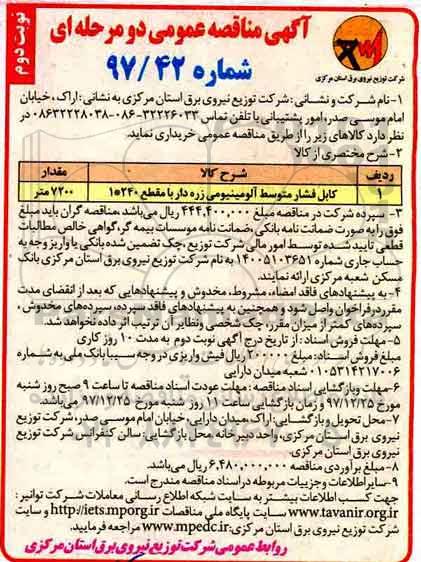 نوبت دوم
آگهی مناقصه عمومی دو مرحله ای
شماره ۹۷/۴۲
شرکت توزیع نیروی برق استان مرکزی
۱- نام شرکت و نشانی: شرکت توزیع نیروی برق استان مرکزی به نشانی: اراک، خیابان
امام موسی صدر، امور پشتیبانی با تلفن تماس ۳۲۲۲۶۰۳۳-۰۸۶-۰۸۶۳۲۲۲۸۰۳۸ در
نظر دارد کالاهای زیر را از طریق مناقصه عمومی خریداری نماید.
۲- شرح مختصری از کالا
ردیف شرح کالا مقدار
۱ کابل فشار متوسط آلومینیومی زره دار با مقطع ۲۴۰*۱ ۷۲۰۰ متر
۳- سپرده شرکت در مناقصه مبلغ ۴۴۴,۴۰۰,۰۰۰ ریال می‌باشد، مناقصه گران باید مبلغ
فوق را به صورت ضمانت نامه بانکی، ضمانت نامه موسسات بیمه گر، گواهی خالص مطالبات
قطعی تایید شده توسط امور مالی شرکت توزیع، چک تضمین شده بانکی یا واریز وجه به
حساب جاری شماره ۱۴۰۰۵۱۰۳۶۵۱ به نام شرکت توزیع نیروی برق استان مرکزی بانک
مسکن شعبه مرکزی ارائه نمایند.
۴- به پیشنهادهای فاقد امضاء، مشروط، مخدوش و پیشنهادهایی که بعد از انقضای مدت
مقرر در فراخوان واصل شود و همچنین به پیشنهادهای فاقد سپرده، سپرده‌های مخدوش،
سپرده‌های کمتر از میزان مقرر، چک شخصی ونظایر آن ترتیب اثر داده نخواهد شد.
۵- مهلت فروش اسناد: از تاریخ درج آگهی نوبت دوم به مدت ۱۰ روز کاری
مبلغ فروش اسناد: مبلغ ۲۰۰۰۰۰ ریال فیش واریزی در وجه سیبا بانک ملی به شماره
۰۱۰۵۳۱۴۲۱۷۰۰۶ شعبه میدان دارایی
۶- مهلت وبازگشایی اسناد مناقصه: مهلت عودت اسناد مناقصه تا ساعت ۹ صبح روز شنبه
مورخ ۹۷/۱۲/۲۵ و زمان بازگشایی ساعت ۱۱ روز شنبه مورخ ۹۷/۱۲/۲۵ می‌باشد.
۷- محل تحویل وبازگشایی: اراک، میدان دارایی، خیابان امام موسی صدر، شرکت توزیع
نیروی برق استان مرکزی، واحد دبیرخانه، محل بازگشایی: سالن کنفرانس شرکت توزیع
نیروی برق استان مرکزی.
۸- مبلغ برآوردی مناقصه ۶,۴۸۰,۰۰۰,۰۰۰ ریال می‌باشد.
۹- سایر اطلاعات و جزییات مربوطه در اسناد مناقصه مندرج است.
جهت کسب اطلاعات بیشتر به سایت شبکه اطلاع رسانی معاملات شرکت توانیر:
www.tavanir.org.ir سایت پایگاه ملی مناقصات http://iets.mporg.ir و سایت
شرکت توزیع نیروی برق استان مرکزی: www.mpedc.ir مراجعه فرمایید.
روابط عمومی شرکت توزیع نیروی برق استان مرکزی